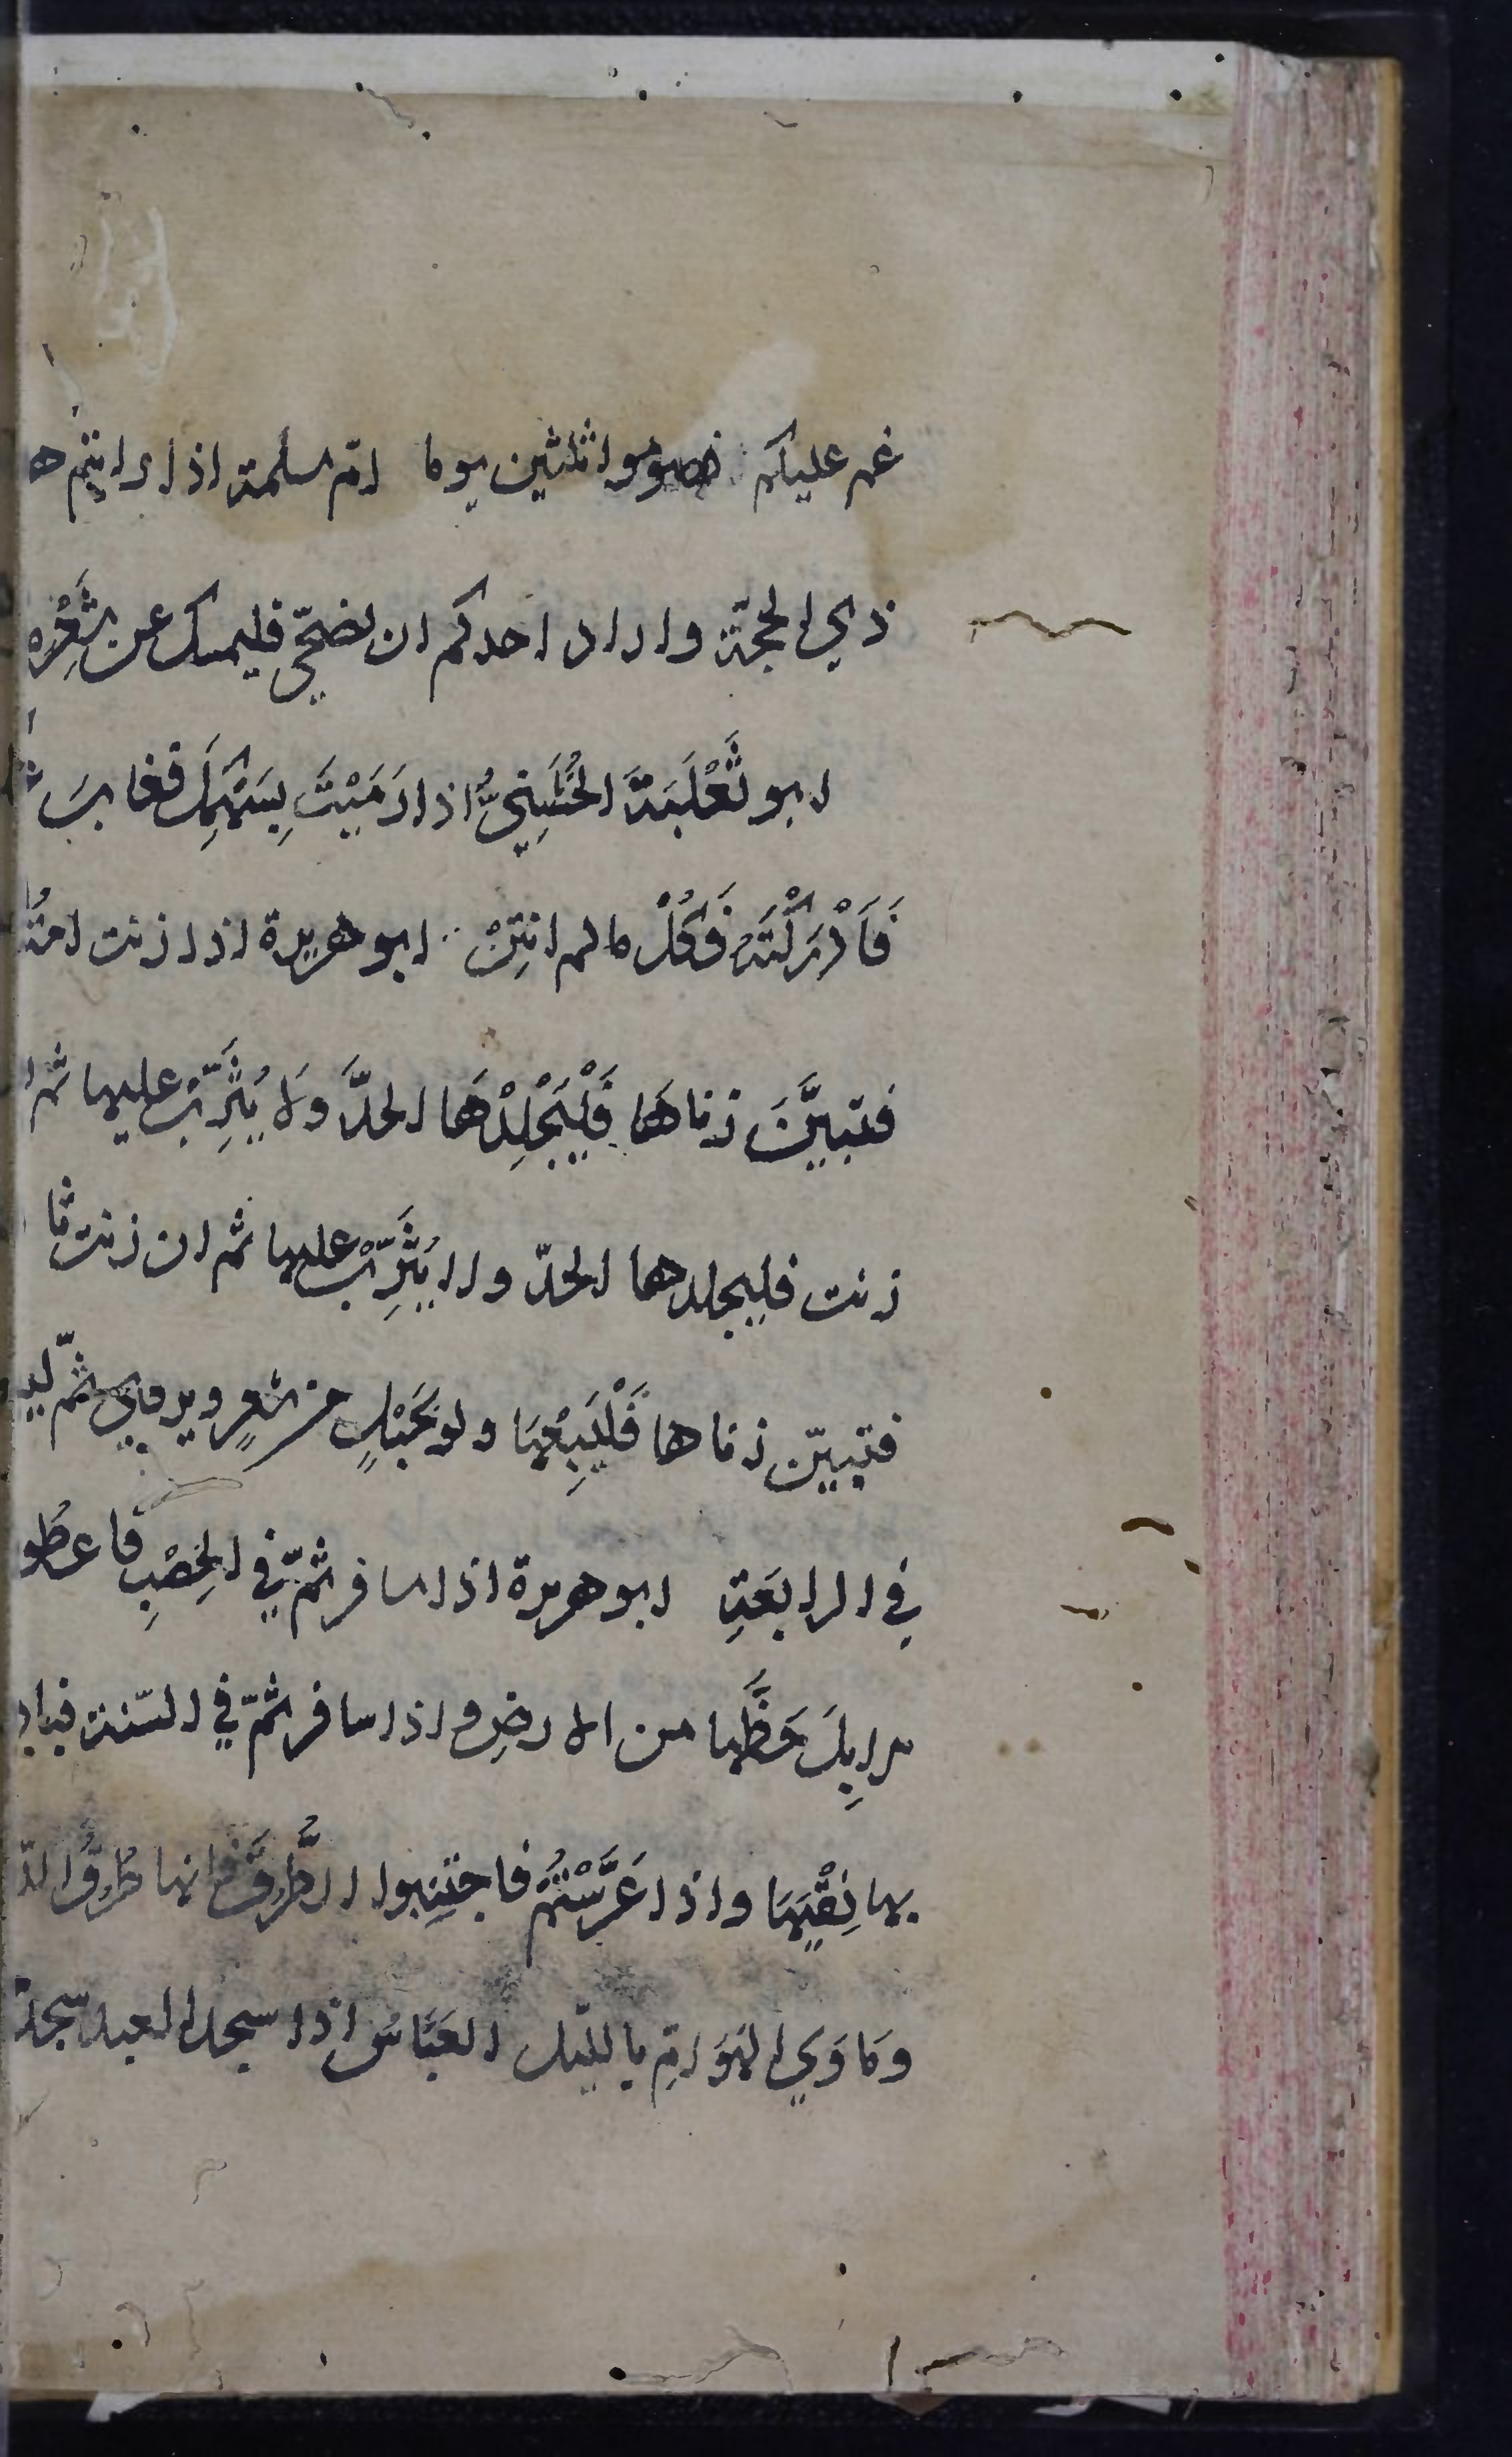 غم عليكم فصوموا ثلثين يوما ام سلمة اذا رايتم ه
ذي الحجّة واراد احدكم ان يضحّي فليمسك عن شَعْرِه
ابو ثَعْلَبَةَ الخُشَنِيُّ اذا رَمَيْتَ بِسَهْمِكَ فغاب
فَاَدْرَكْتَهُ فَكُلْ ما لم انتِنْ ابو هريرة اذا زنت امَةُ
فتبيَّنَ زناهَا فَلْيَجْلِدْهَا الحدَّ ولا يُثَرِّبْ عليها ثم ا
زنت فليجلدها الحدّ ولا يُثَرِّبْ عليها ثم ان زنت ثا
فتبيّن زناها فَلْيَبِعْهَا ولو بحَبْلٍ من شعرٍ ويروي ثمّ ليب
في الرابعَةِ ابو هريرة اذا سافرتمّ في الخِصْبِ فاعطُو
الابِلَ حَظَّها من الارضِ واذا سافرتمّ في السّنة فباد
بها نِقْيَهَا واذا عَرَّسْتُمْ فاجتنِبوا الطُّرُقَ فانها طُرُقُ الدّ
وماوَي الهَوَامِّ بالليّل العَبَّاسُ اذا سجد العبد سجد